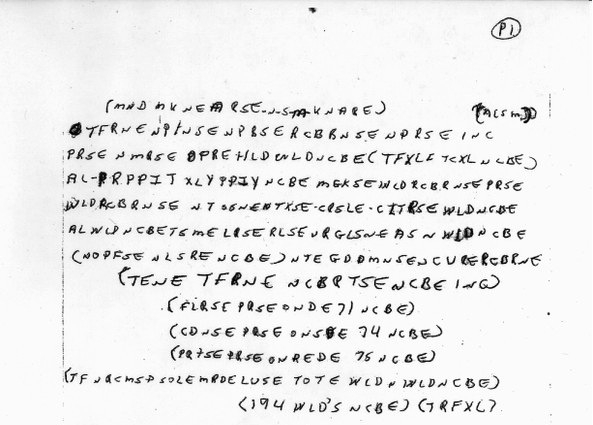 P1
(MND MKNEARSE-N-S-M-KNARE) (ACSM)
TFRNENPINSENPBSERCBBNSENPRSEINC
PRSENMRSEOPREHLDWLDNCBE(TFXLFTCXLNCBE)
AL-PRPPITXLYPPIYNCBEMGKSEWLDRCBRNSEPRSE
WLDRCBRNSENTOGNENTXSE-CRSLE-CITRSEWLDNCBE
ALWLDNCBETSMELRSERLSENRGLSNEASNWLDNCBE
(NOPFSENLSRENCBE)NTEGDDMNSENCURERCBRNE
(TENETFRNENCBRTSENCBEING)
(FLRSEPRSEONDE71NCBE)
(CDNSEPRSEONSDE74NCBE)
(PRTSEPRSEONREDE75NCBE)
(TFNRCMSPSOLEMRDELUSETOTEWLDNWLDNCBE)
(194WLD'SNCBE)(TRFXL)